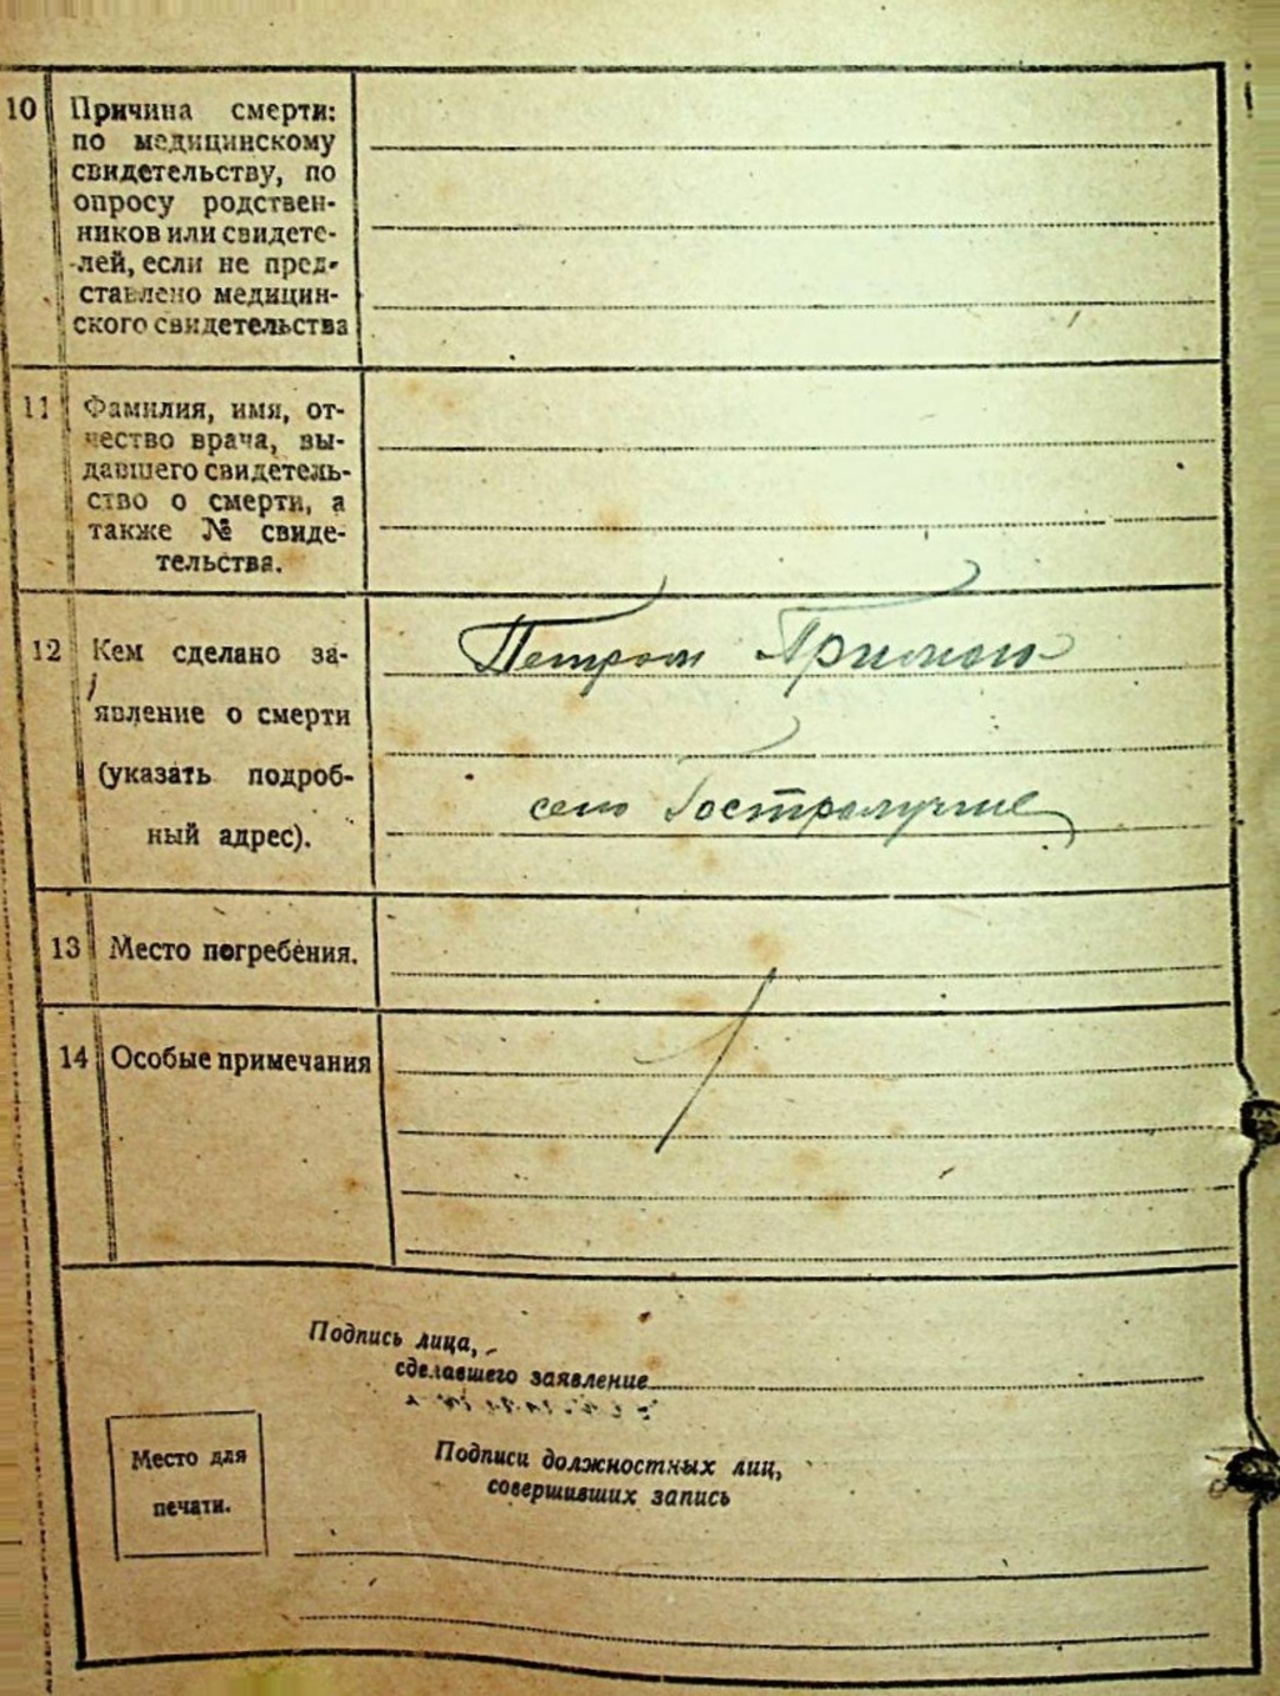 10 Причина смерти:
по медицинскому
свидетельству, по
опросу родствен-
ников или свидете-
лей, если не пред-
ставлено медицин-
ского свидетельства
11 Фамилия, имя, от-
чество врача, вы-
давшего свидетель-
ство о смерти, а
также № свиде-
тельства.
12 Кем сделано за-
явление о смерти
(указать подроб-
ный адрес).
Петром
село Гостролучче
13 Место погребения.
14 Особые примечания
Подпись лица,
сделавшего заявление
Место для
печати.
Подписи должностных лиц,
совершивших запись